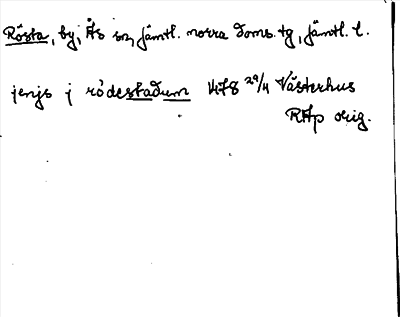 Rösta, by, Ås sn, Jämtl. norra doms. tg, Jämtl. l.
jenss j rödestadum 1478 29/4 Västerhus
RAp orig.